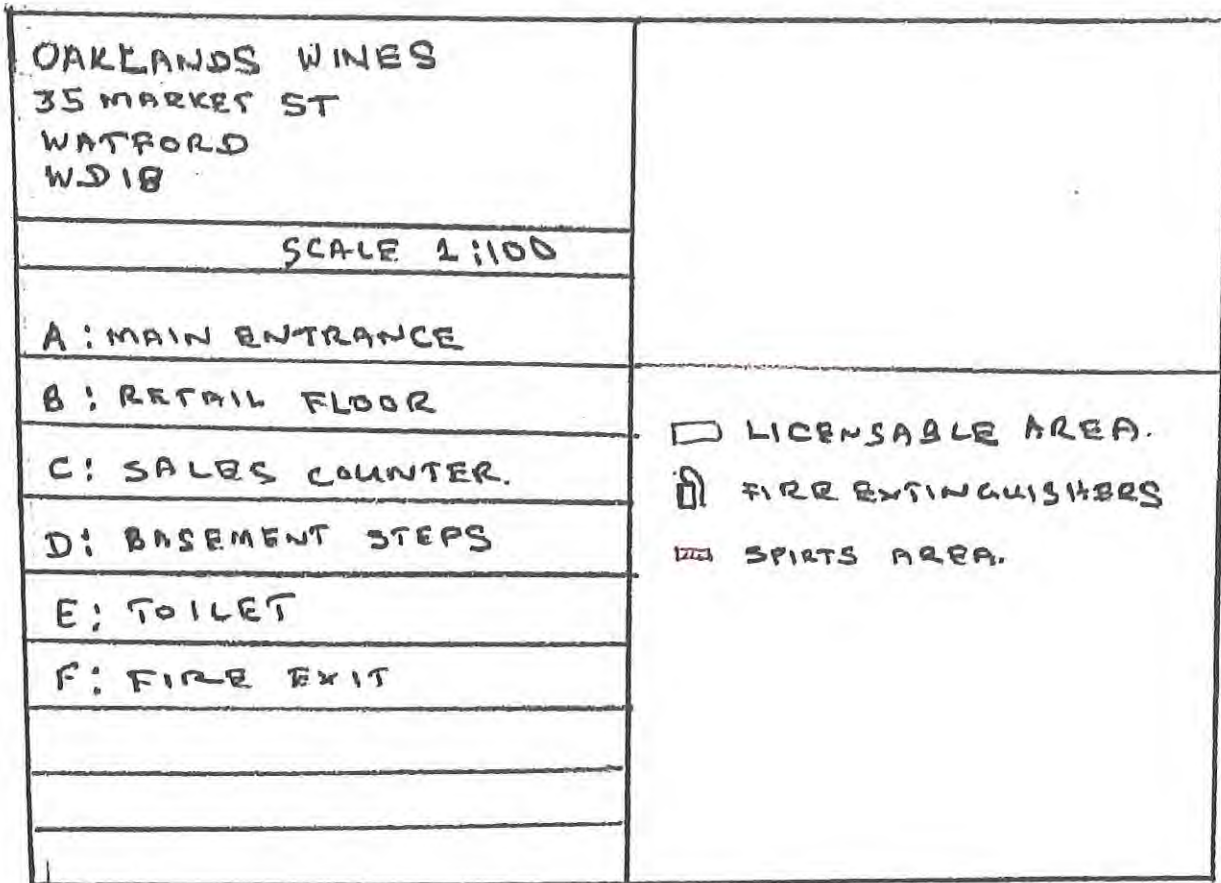 OAKLANDS WINES
35 MARKET ST
WATFORD
WD18
SCALE 1:100
A: MAIN ENTRANCE
B: RETAIL FLOOR
C: SALES COUNTER.
D: BASEMENT STEPS
E: TOILET
F: FIRE EXIT
LICENSABLE AREA.
FIRE EXTINGUISHERS
SPIRTS AREA.